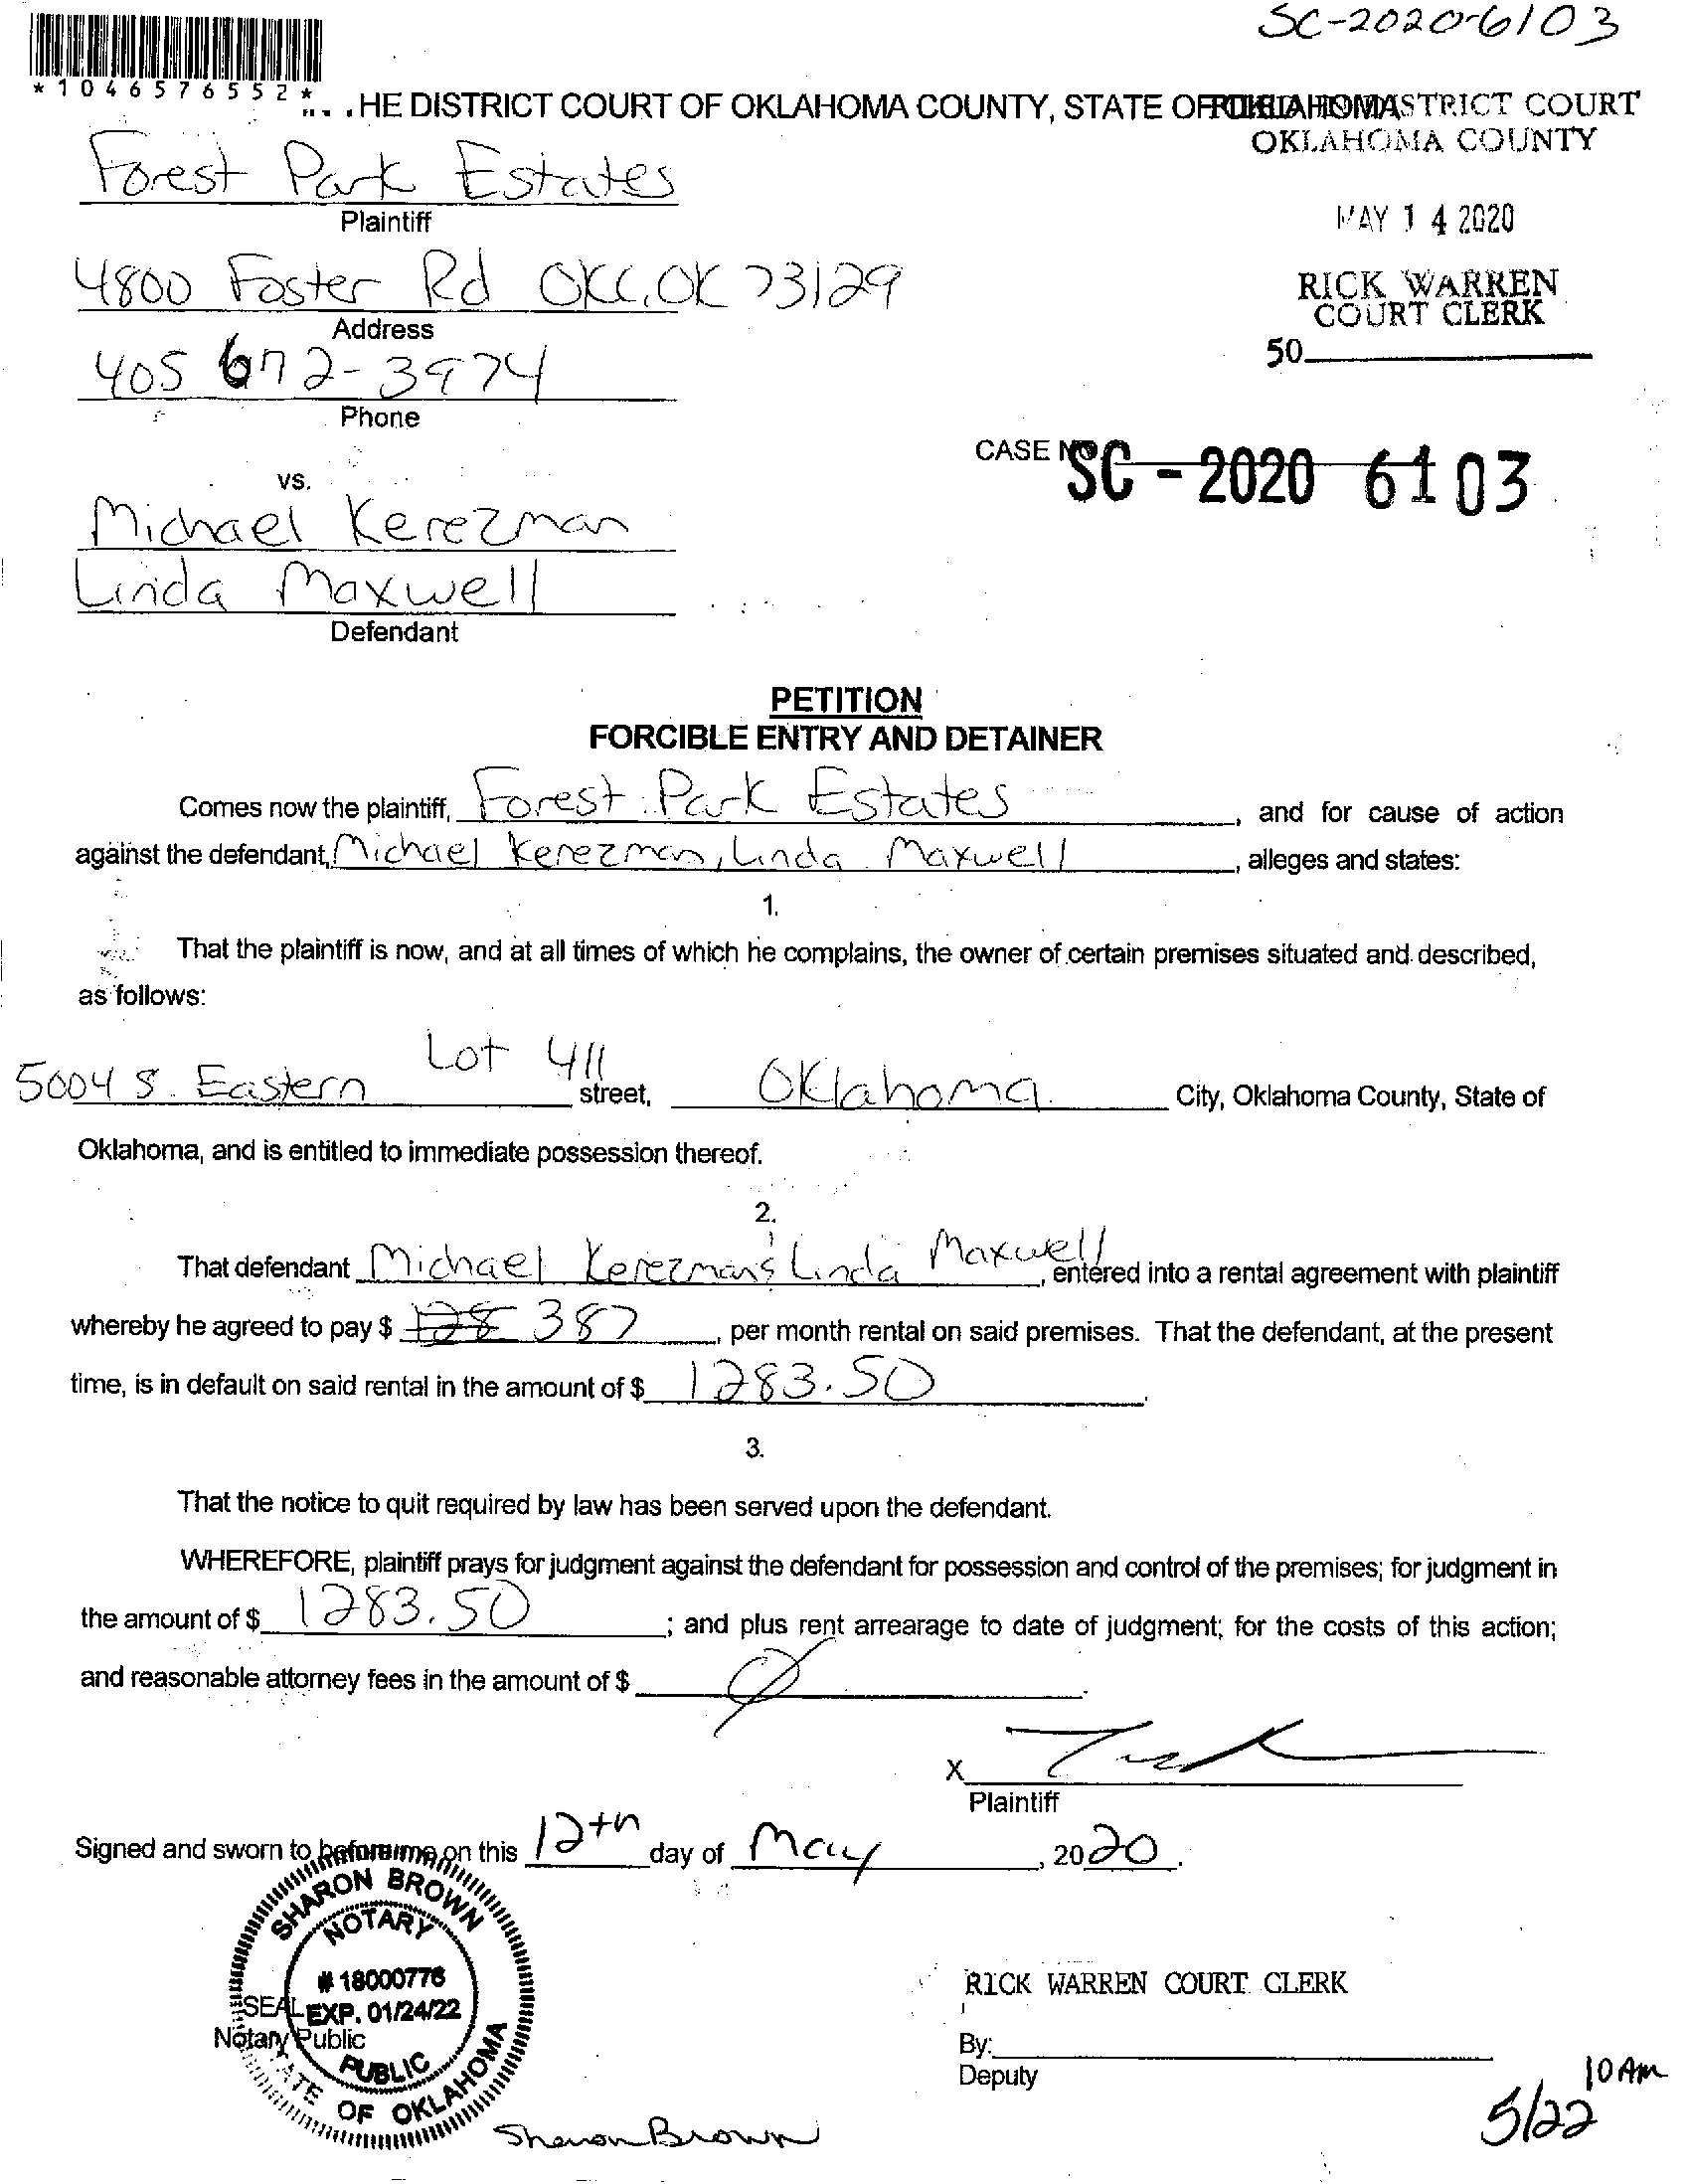 SC-2020-6103
*1046576552*
HE DISTRICT COURT OF OKLAHOMA COUNTY, STATE OF OKLAHOMA
DISTRICT COURT
OKLAHOMA COUNTY
Forest Park Estates
Plaintiff
MAY 14 2020
4800 Foster Rd OKC, OK 73129
Address
RICK WARREN
COURT CLERK
50
405 672-3974
Phone
CASE NO SC - 2020 6103
vs.
Michael Kerezman
Linda Maxwell
Defendant
PETITION
FORCIBLE ENTRY AND DETAINER
Comes now the plaintiff, Forest Park Estates, and for cause of action
against the defendant, Michael Kerezman, Linda Maxwell, alleges and states:
1.
That the plaintiff is now, and at all times of which he complains, the owner of certain premises situated and described,
as follows:
5004 S. Eastern Lot 411 street, Oklahoma City, Oklahoma County, State of
Oklahoma, and is entitled to immediate possession thereof.
2.
That defendant Michael Kerezman & Linda Maxwell, entered into a rental agreement with plaintiff
whereby he agreed to pay $ 128 387, per month rental on said premises. That the defendant, at the present
time, is in default on said rental in the amount of $ 1283.50.
3.
That the notice to quit required by law has been served upon the defendant.
WHEREFORE, plaintiff prays for judgment against the defendant for possession and control of the premises; for judgment in
the amount of $ 1283.50; and plus rent arrearage to date of judgment; for the costs of this action;
and reasonable attorney fees in the amount of $ Ø.
X
Plaintiff
Signed and sworn to before me on this 12th day of May, 2020.
SHARON BROWN
NOTARY
# 18000776
EXP. 01/24/22
PUBLIC
STATE OF OKLAHOMA
SEAL
Notary Public
RICK WARREN COURT CLERK
By:
Deputy
Sharon Brown
10 AM
5/22